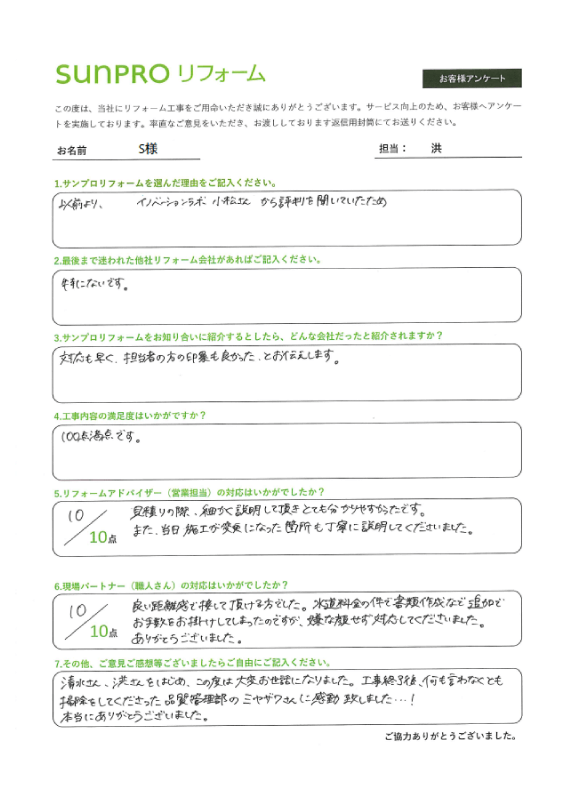 SUNPRO リフォーム
お客様アンケート
この度は、当社にリフォーム工事をご用命いただき誠にありがとうございます。サービス向上のため、お客様へアンケー
トを実施しております。率直なご意見をいただき、お渡ししております返信用封筒にてお送りください。
お名前 S様 担当： 洪
1.サンプロリフォームを選んだ理由をご記入ください。
以前より、 イノベーションラボ 小松さん から評判を聞いていたため
2.最後まで迷われた他社リフォーム会社があればご記入ください。
特にないです。
3.サンプロリフォームをお知り合いに紹介するとしたら、どんな会社だったと紹介されますか？
対応も早く、担当者の方の印象も良かった、とお伝えします。
4.工事内容の満足度はいかがですか？
100点満点です。
5.リフォームアドバイザー（営業担当）の対応はいかがでしたか？
10／10点
見積りの際、細かく説明して頂きとても分かりやすかったです。
また、当日施工が変更になった箇所も丁寧に説明してくださいました。
6.現場パートナー（職人さん）の対応はいかがでしたか？
10／10点
良い距離感で接して頂ける方でした。水道料金の件で書類作成など追加で
お手数をお掛けしてしまったのですが、嫌な顔せず対応してくださいました。
ありがとうございました。
7.その他、ご意見ご感想等ございましたらご自由にご記入ください。
清水さん、洪さんをはじめ、この度は大変お世話になりました。工事終了後、何も言わなくとも
掃除をしてくださった品質管理部のミヤザワさんに感動致しました…！
本当にありがとうございました。
ご協力ありがとうございました。